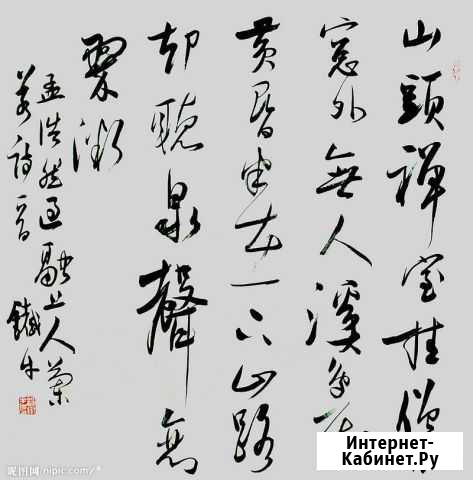 山頭禪室挂僧
窓外無人溪鳥飛
黄昏半在下山路
却聽泉聲戀
翠微
孟浩然過融上人蘭
若詩一首 鐵牛
昵图网 nipic.com/
Интернет-
Кабинет.Ру